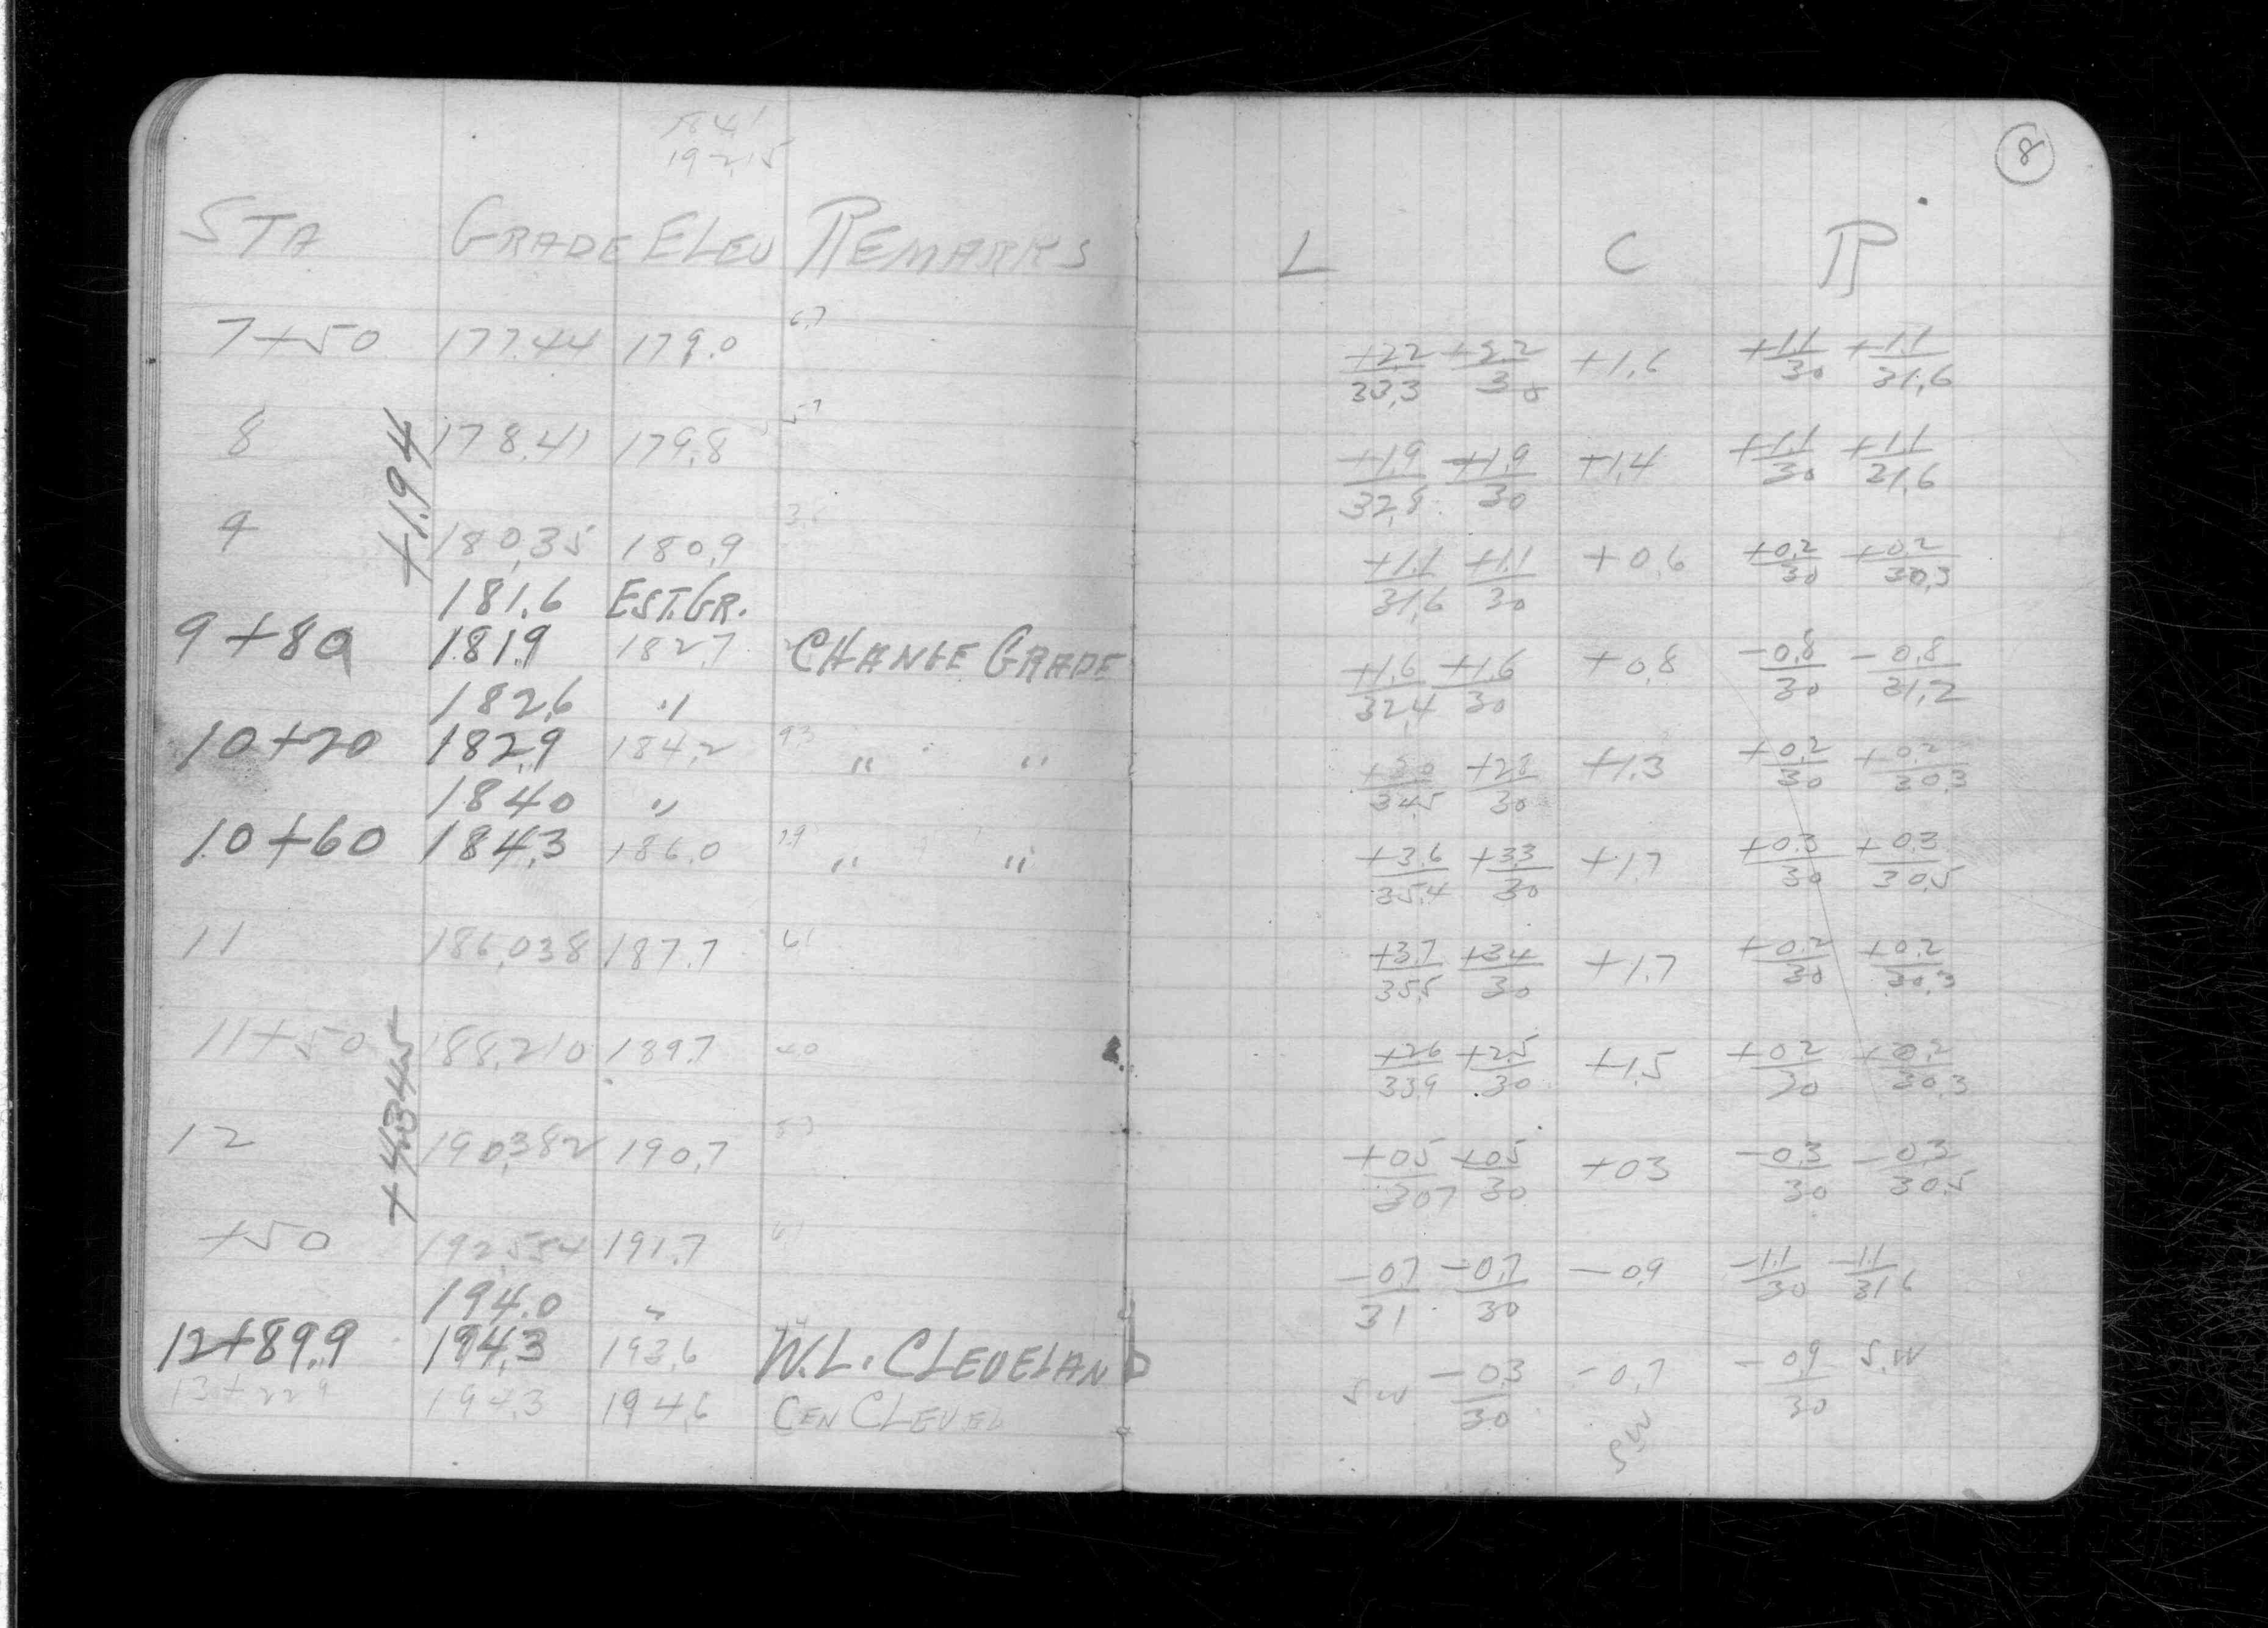 8
184.1
192.15
STA GRADE ELEV REMARKS L C R
7+50 177.44 179.0 6.7 +2.2/33.3 +2.2/30 +1.6 +1.1/30 +1.1/31.6
8 178.41 179.8 5.7 +1.9/32.8 +1.9/30 +1.4 +1.1/30 +1.1/31.6
+1.94
9 180.35 180.9 +1.1/31.6 +1.1/30 +0.6 +0.2/30 +0.2/30.3
181.6 EST.GR.
9+80 181.9 182.7 CHANGE GRADE +1.6/32.4 +1.6/30 +0.8 -0.8/30 -0.8/31.2
182.6 "
10+20 182.9 184.2 9.3 " " +3.0/34.5 +2.8/30 +1.3 +0.2/30 +0.2/30.3
184.0 "
10+60 184.3 186.0 7.9 " " +3.6/35.4 +3.3/30 +1.7 +0.3/30 +0.3/30.5
11 186.038 187.7 6.1 +3.7/35.5 +3.4/30 +1.7 +0.2/30 +0.2/30.3
11+50 188.210 189.7 4.0 +2.6/33.9 +2.5/30 +1.5 +0.2/30 +0.2/30.3
+4.345
12 190.382 190.7 +0.5/30.7 +0.5/30 +0.3 -0.3/30 -0.3/30.5
+50 192.554 191.7 -0.7/31 -0.7/30 -0.9 -1.1/30 -1.1/31.6
194.0 "
12+89.9 194.3 193.6 W.L. CLEVELAND S.W -0.3/30 -0.7 -0.9/30 S.W
13+22.9 194.3 194.6 CEN CLEVEL S.W